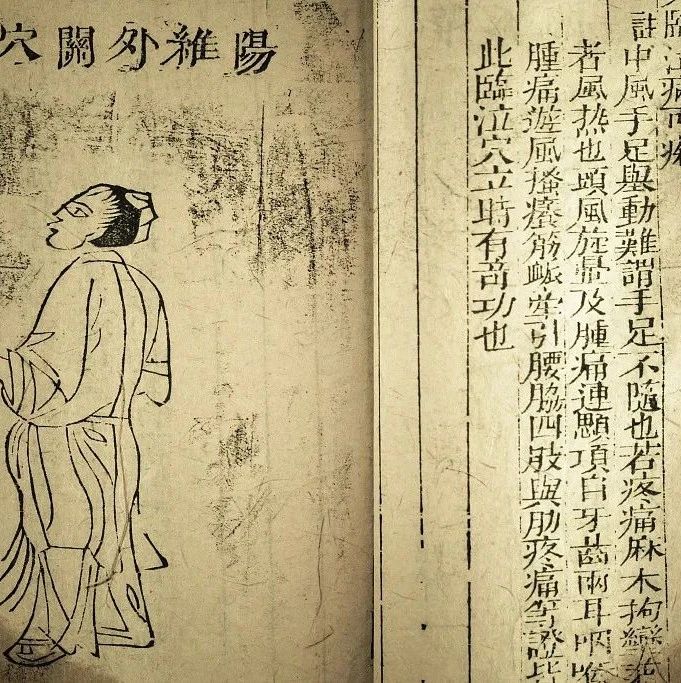 臨泣病可痊
註中風手足舉動難謂手足不隨也若疼痛麻木拘攣
者風热也頭風旋暈及腫痛連顋項目牙齒兩耳咽喉
腫痛遊風搔癢筋脈牽引腰脇四肢與肋疼痛等證
此臨泣穴立時有奇功也
陽維外關穴